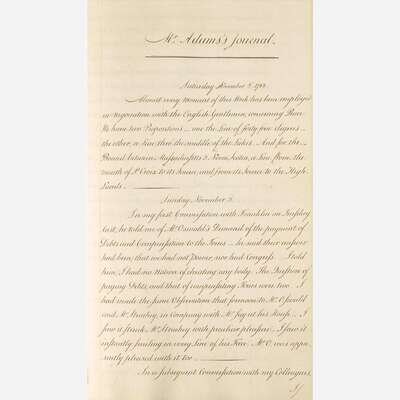 Mr. Adams's Journal.
Saturday November 2. 1782
Almost every Moment of this Week has been employed
in Negociation with the English Gentlemen, concerning Peace.
We have two Propositions — one the Line of forty five degrees —
the other, a Line thro the middle of the Lakes. And for the
Bound between Massachusetts & Nova Scotia, a Line from the
mouth of St Croix to its Source, and from its Source to the High
Lands.
Sunday November 3.
In my first Conversation with Franklin on Tuesday
last, he told me of Mr. Oswald's Demand of the payment of
Debts and Compensation to the Tories — he said their answer
had been, that we had not Power, nor had Congress. I told
him, I had no Notion of cheating any body. The Question of
paying Debts, and that of compensating Tories were two. I
had made the same Observation that forenoon to Mr. Oswald
and Mr. Strachey, in Company with Mr. Jay at his House. I
saw it struck Mr. Strachey with peculiar pleasure. I saw it
instantly smiling in every Line of his Face. Mr. O. was appa-
rently pleased with it too
In a subsequent Conversation with my Colleagues,